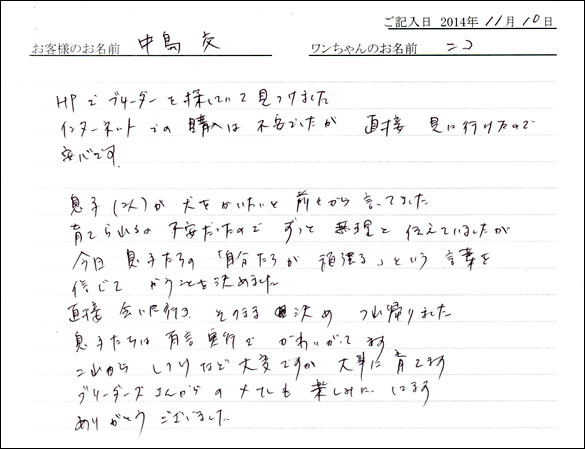 ご記入日 2014年 11月 10日
お客様のお名前 中島 文 ワンちゃんのお名前 ニコ
HPでブリーダーを探していて見つけました
インターネットでの購入は不安でしたが 直接 見に行けたので
安心です。
息子(2人)が犬をかいたいと前々から言ってました
育てられるか不安だったので ずっと無理と伝えていましたが
今日 息子たちの「自分たちが頑張る」という言葉を
信じて かうことを決めました
直接 会いに行き そのまま 決め つれ帰りました
息子たちは有言実行で かわいがってます
これから しつけなど大変ですが 大事に育てます
ブリーダーズさんからのメールも楽しみにしてます
ありがとうございました